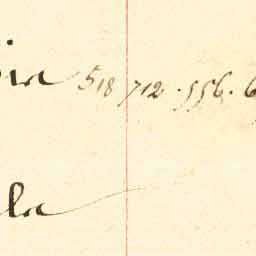 518 712 . 556 . 6
la